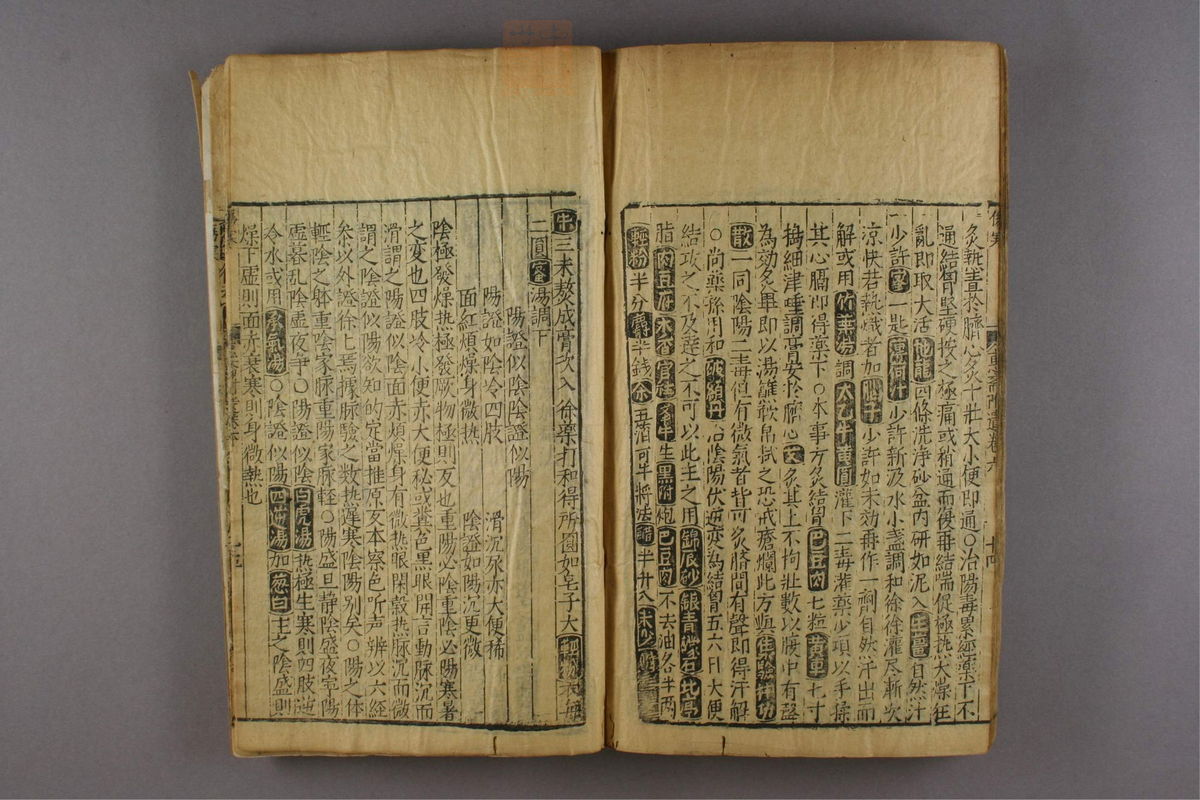 灸熱直於臍心灸十壯大小便即通〇治陽毒累經藥下不
通結胷堅硬按之極痛或稍通而復再結喘促極熱大燥狂
亂即取大活地龍四條洗淨砂盆內研如泥入生薑自然汁
少許蜜一匙薄荷汁少許新汲水小盞調和徐徐灌尽漸次
涼快若熱熾者加腦子少許如未効再作一劑自然汗出而
解或用竹葉湯調太乙牛黃圓灌下二毒灌藥少頃以手揉
其心膈即得藥下〇本事方灸結胷巴豆肉七粒黃連七寸
搗細津唾調膏安於臍心艾灸其上不拘壯數以腹中有聲
為効灸畢即以湯蘸軟帛拭之恐成瘡爛此方
散一同陰陽二毒但有微氣者皆可灸臍間有聲即得汗解
〇尚藥孫用和破結丹治陰陽伏逆變為結胷五六日大便
結攻之不及達之不可以此主之用錦辰砂銀青礞石
脂肉豆蔲木香官桂生黑附炮巴豆肉不去油各半兩
輕粉半分麝半錢將法醋半升入
三味熬成膏次入徐藥打和得所圓如皂子大每
二圓湯調下
陽證似陰陰證似陽
陽證如陰冷四肢 滑沉尿赤大便稀
面紅煩燥身微熱 陰證如陽沉更微
陰極發燥热極發厥物極則反也重陽必陰重陰必陽寒暑
之变也四肢冷小便赤大便秘或糞色黑眼開言動脉沉而
滑謂之陽證似陰面赤煩燥身有微热眼閑殼热脉沉而微
謂之陰證似陽欲知的定當推原反本察色听声辨以六經
叅以外證徐七焉據脉驗之数热遲寒陰陽別矣〇陽之体
輕陰之躰重陰家脉重陽家脉輕〇陽盛旦静陰盛夜寧陽
虛暮乱陰虛夜爭〇陽證似陰白虎湯热極生寒則四肢逆
冷水或用承氣湯〇陰證似陽四逆湯加葱白主之陰盛則
燥干虛則面赤裏寒則身微熱也